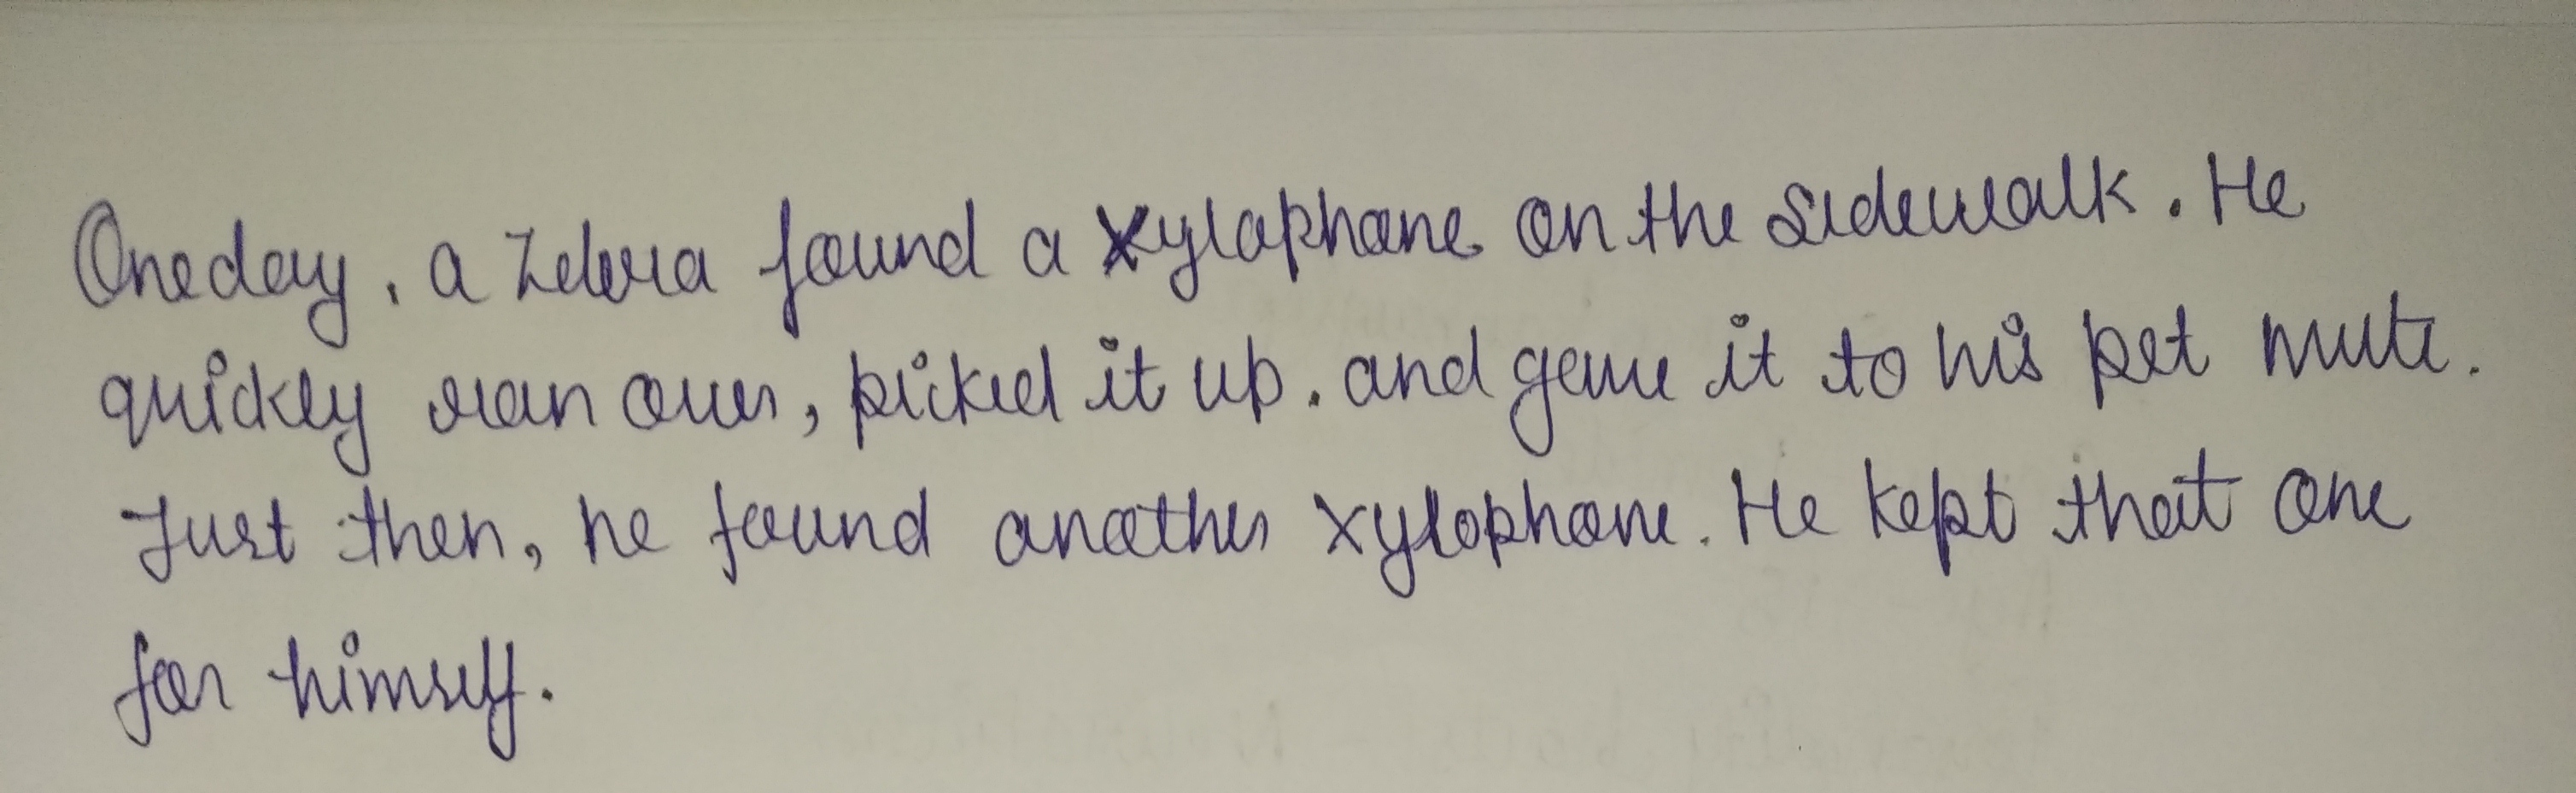 Oneday, a Zebra found a xylophone on the sidewalk. He
quickly ran over, picked it up. and gave it to his pet mute.
Just then, he found another xylophone. He kept that one
for himself.